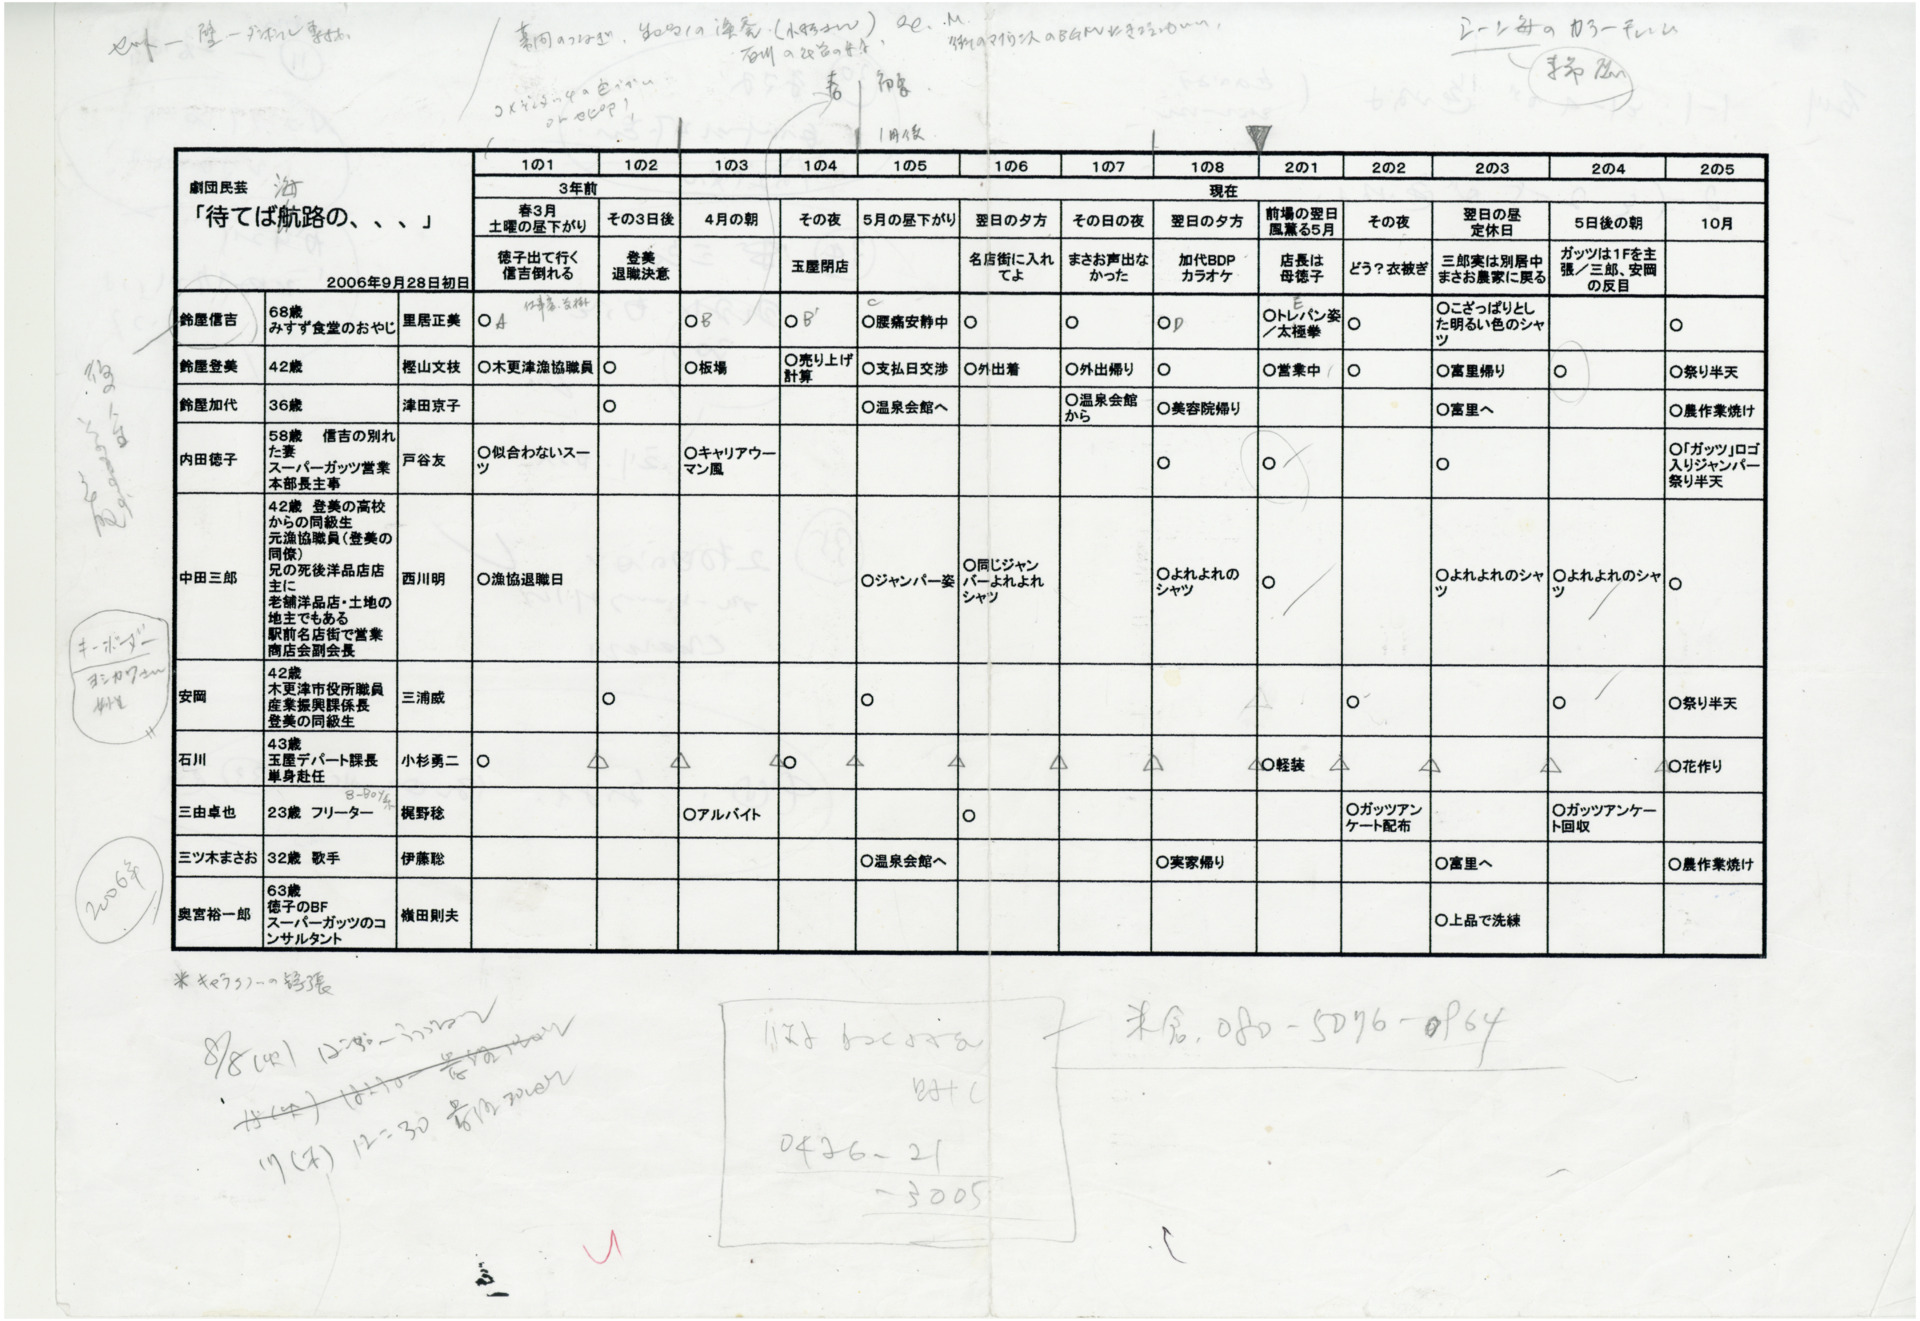 シーン毎のカラーチェンジ
1月後
1の1 1の2 1の3 1の4 1の5 1の6 1の7 1の8 2の1 2の2 2の3 2の4 2の5
劇団民芸 海
「待てば航路の、、、」
2006年9月28日初日
3年前 現在
春3月
土曜の昼下がり
その3日後
4月の朝
その夜
5月の昼下がり
翌日の夕方
その日の夜
翌日の夕方
前場の翌日
風薫る5月
その夜
翌日の昼
定休日
5日後の朝
10月
徳子出て行く
信吉倒れる
登美
退職決意
玉屋閉店
名店街に入れ
てよ
まさお声出な
かった
加代BDP
カラオケ
店長は
母徳子
どう?衣被ぎ
三郎実は別居中
まさお農家に戻る
ガッツは1Fを主
張/三郎、安岡
の反目
鈴屋信吉
68歳
みすず食堂のおやじ
里居正美
○ A
○B
○B'
C
○腰痛安静中
○
○
○D
E
○トレパン姿
/太極拳
○
○こざっぱりとし
た明るい色のシャ
ツ
○
鈴屋登美
42歳
樫山文枝
○木更津漁協職員
○
○板場
○売り上げ
計算
○支払日交渉
○外出着
○外出帰り
○
○営業中
○
○富里帰り
○
○祭り半天
鈴屋加代
36歳
津田京子
○
○温泉会館へ
○温泉会館
から
○美容院帰り
○富里へ
○農作業焼け
内田徳子
58歳 信吉の別れ
た妻
スーパーガッツ営業
本部長主事
戸谷友
○似合わないスー
ツ
○キャリアウー
マン風
○
○
○
○「ガッツ」ロゴ
入りジャンパー
祭り半天
中田三郎
42歳 登美の高校
からの同級生
元漁協職員(登美の
同僚)
兄の死後洋品店店
主に
老舗洋品店・土地の
地主でもある
駅前名店街で営業
商店会副会長
西川明
○漁協退職日
○ジャンパー姿
○同じジャン
バーよれよれ
シャツ
○よれよれの
シャツ
○
○よれよれのシャ
ツ
○よれよれのシャ
ツ
○
安岡
42歳
木更津市役所職員
産業振興課係長
登美の同級生
三浦威
○
○
○
○
○祭り半天
石川
43歳
玉屋デパート課長
単身赴任
小杉勇二
○
○
○軽装
○花作り
三由卓也
B-BOY系
23歳 フリーター
梶野稔
○アルバイト
○
○ガッツアン
ケート配布
○ガッツアンケー
ト回収
三ツ木まさお
32歳 歌手
伊藤聡
○温泉会館へ
○実家帰り
○富里へ
○農作業焼け
奥宮裕一郎
63歳
徳子のBF
スーパーガッツのコ
ンサルタント
嶺田則夫
○上品で洗練
キーボーダー
2006年
※キャラクターの誇張
8/8(火)
17(木) 12:30
米倉. 080-5076-0964
0426-21
-3005